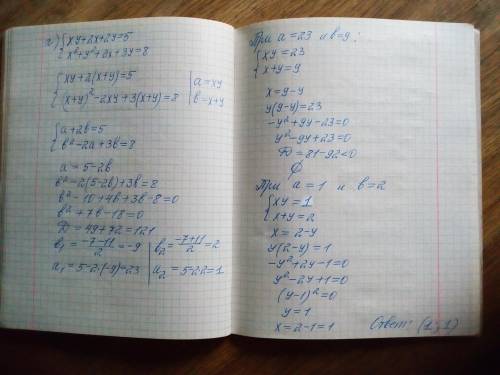 г) { xy+2x+2y=5
x²+y²+2x+3y=8
{ xy+2(x+y)=5
(x+y)²-2xy+3(x+y)=8
| a=xy
| b=x+y
{ a+2b=5
b²-2a+3b=8
a=5-2b
b²-2(5-2b)+3b=8
b²-10+4b+3b-8=0
b²+7b-18=0
D=49+72=121
b₁=(-7-11)/2=-9 | b₂=(-7+11)/2=2
a₁=5-2·(-9)=23 | a₂=5-2·2=1
При a=23 и b=9:
{ xy=23
x+y=9
x=9-y
y(9-y)=23
-y²+9y-23=0
y²-9y+23=0
D=81-92<0
∅
При a=1 и b=2
{ xy=1
x+y=2
x=2-y
y(2-y)=1
-y²+2y-1=0
y²-2y+1=0
(y-1)²=0
y=1
x=2-1=1
Ответ: (1;1)